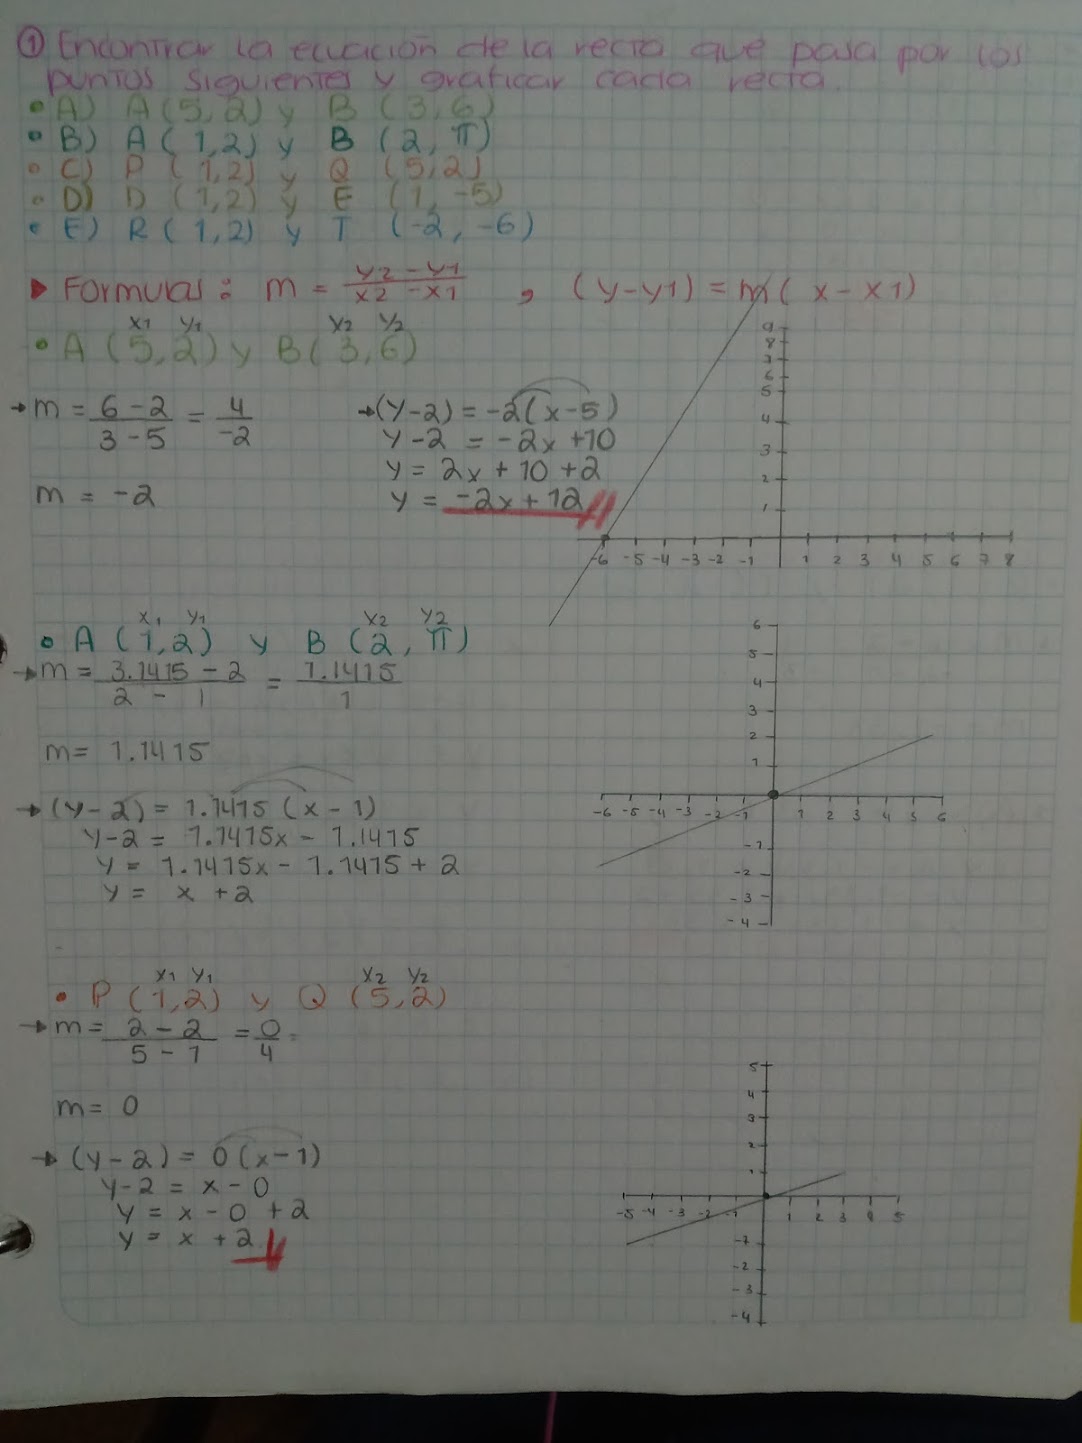 ① Encontrar la ecuación de la recta que pasa por los
puntos siguientes y graficar cada recta.
• A) A (5,2) y B (3,6)
• B) A (1,2) y B (2, π)
• C) P (1,2) y Q (5,2)
• D) D (1,2) y E (1, -5)
• E) R (1,2) y T (-2, -6)
▶ Formulas: m = y2 - y1 / x2 - x1 , (y-y1) = m (x - x1)
x1 y1 x2 y2
• A (5,2) y B (3,6)
→ m = 6 - 2 / 3 - 5 = 4 / -2
m = -2
→ (y-2) = -2(x-5)
y-2 = -2x +10
y = 2x + 10 +2
y = -2x + 12
9
8
7
6
5
4
3
2
1
-6 -5 -4 -3 -2 -1 1 2 3 4 5 6 7 8
x1 y1 x2 y2
• A (1,2) y B (2, π)
→ m = 3.1415 - 2 / 2 - 1 = 1.1415 / 1
m = 1.1415
→ (y-2) = 1.1415 (x - 1)
y-2 = 1.1415x - 1.1415
y = 1.1415x - 1.1415 + 2
y = x +2
6
5
4
3
2
1
-6 -5 -4 -3 -2 -1 1 2 3 4 5 6
-1
-2
-3
-4
x1 y1 x2 y2
• P (1,2) y Q (5,2)
→ m = 2 - 2 / 5 - 1 = 0 / 4
m = 0
→ (y-2) = 0(x-1)
y-2 = x - 0
y = x - 0 + 2
y = x + 2
5
4
3
2
1
-5 -4 -3 -2 -1 1 2 3 4 5
-1
-2
-3
-4